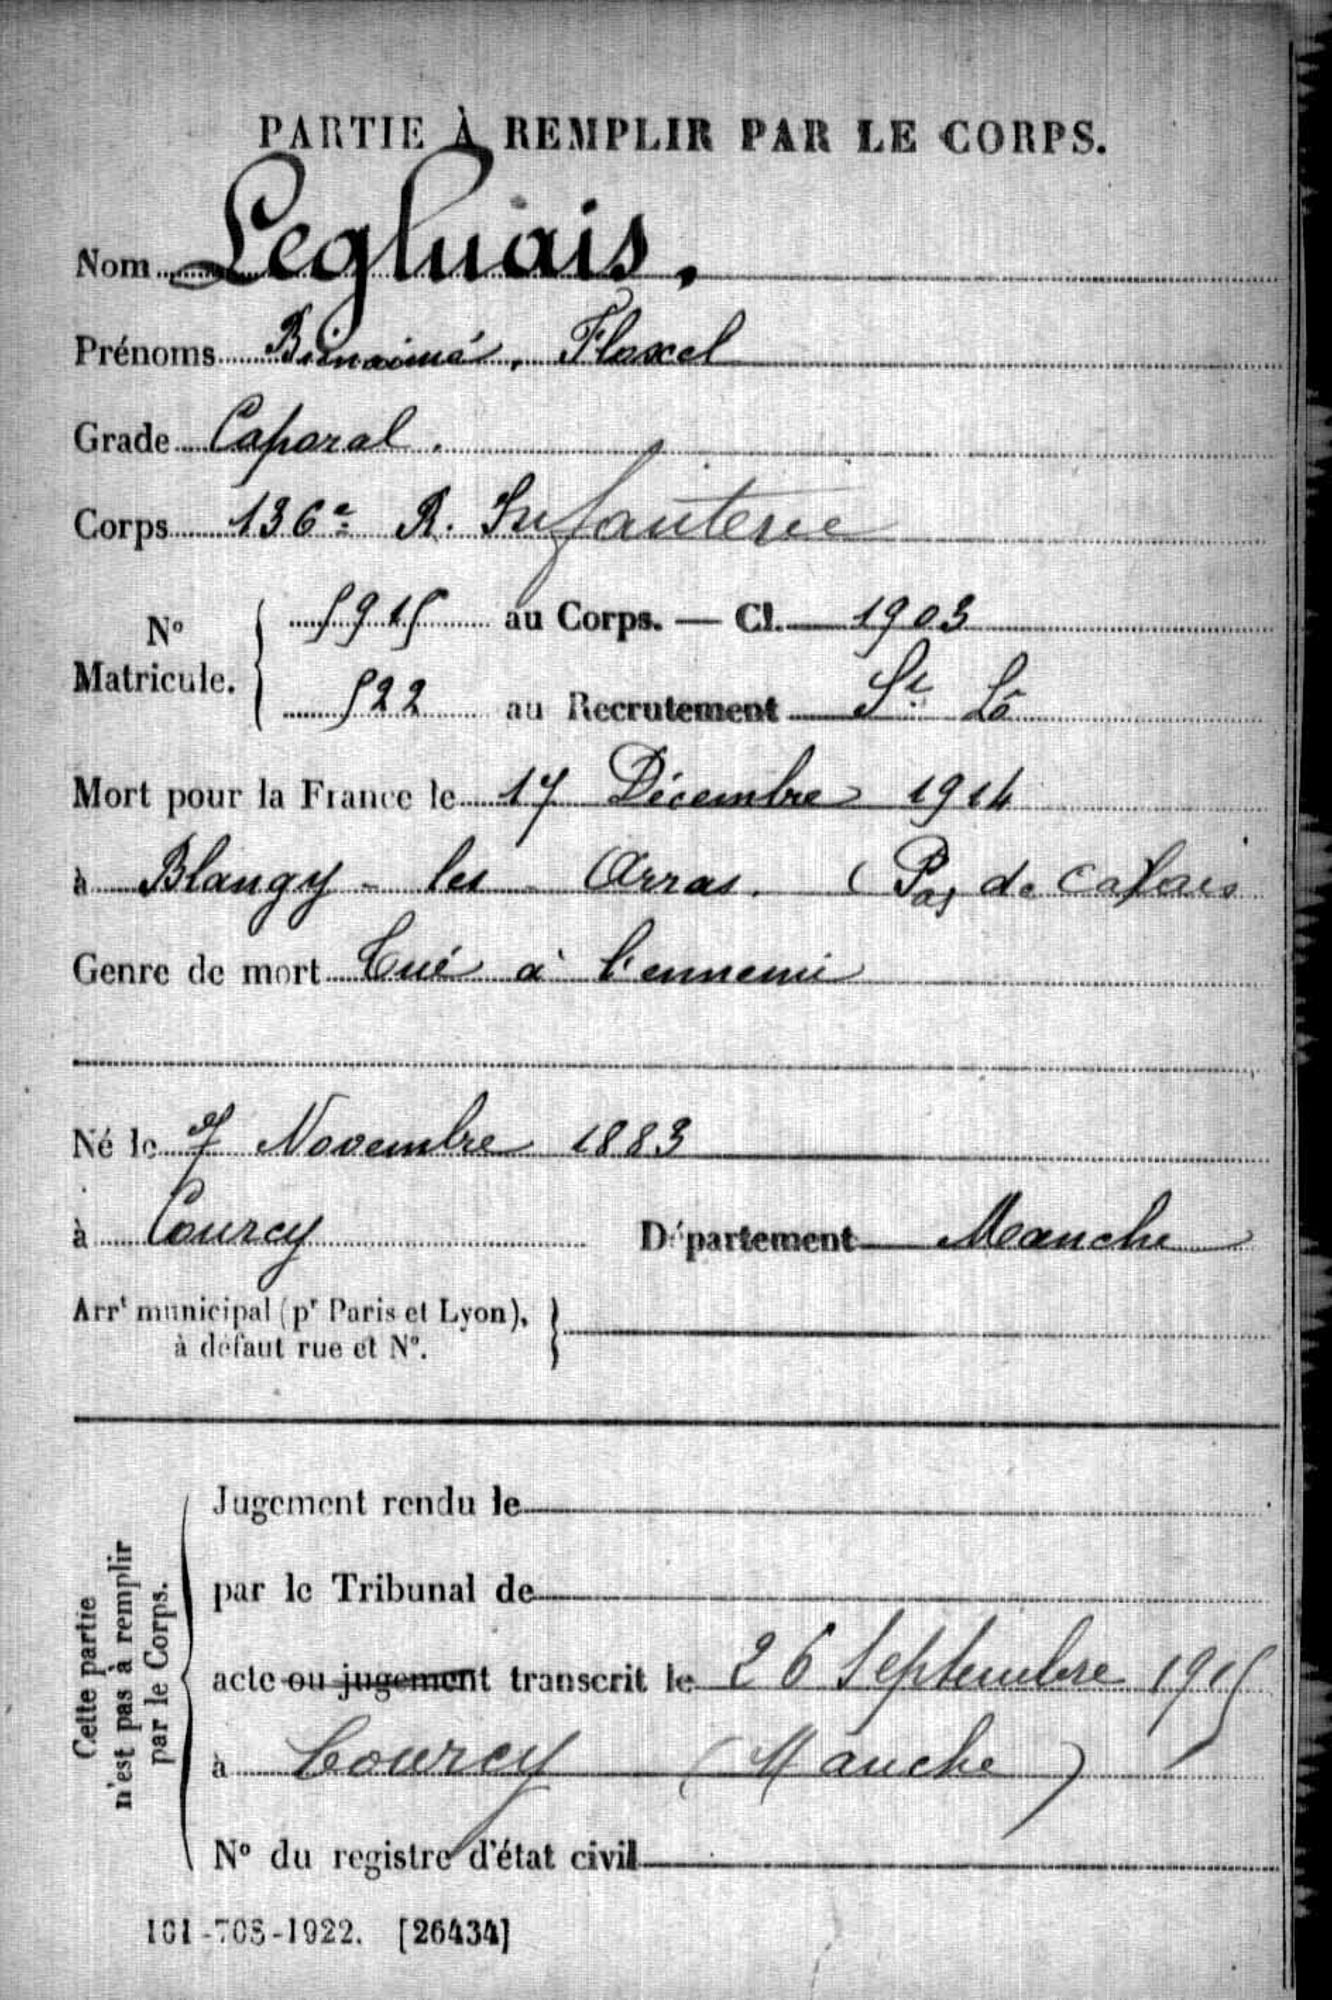 PARTIE À REMPLIR PAR LE CORPS.
Nom Legluais.
Prénoms Bienaimé, Floxel
Grade Caporal.
Corps 136e R. Infanterie
N° Matricule. 5915 au Corps. — Cl. 1903
522 au Recrutement St Lô
Mort pour la France le 17 Décembre 1914
à Blangy - les - Arras. (Pas de Calais
Genre de mort Tué à l'ennemi
Né le 7 Novembre 1883
à Courcy Département Manche
Arrt municipal (pr Paris et Lyon),
à défaut rue et N°.
Cette partie
n'est pas à remplir
par le Corps.
Jugement rendu le
par le Tribunal de
acte ou jugement transcrit le 26 Septembre 1915
à Courcy (Manche)
N° du registre d'état civil
101-708-1922. [26434]